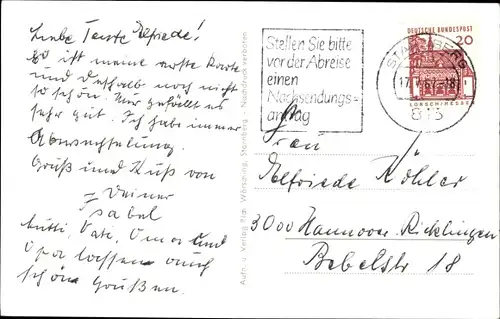 Liebe Tante Elfriede!
Es ist meine erste Karte
und deshalb noch nicht
so schön. Mir gefällt es
sehr gut. Ich habe immer
Abwechselung.
Gruß und Kuß von
Deiner
Isabel
Mutti, Vati, Oma und
Opa lassen auch
schön Grüßen.
Aufn. u. Verlag Wörsching, Starnberg - Nachdruck verboten
Stellen Sie bitte
vor der Abreise
einen
Nachsendungs-
antrag
STARNBERG
17.V.67-18
813
DEUTSCHE BUNDESPOST
20
LORSCH/HESSEN
Frau
Elfriede Köhler
3000 Hannover-Ricklingen
Bebelstr 18